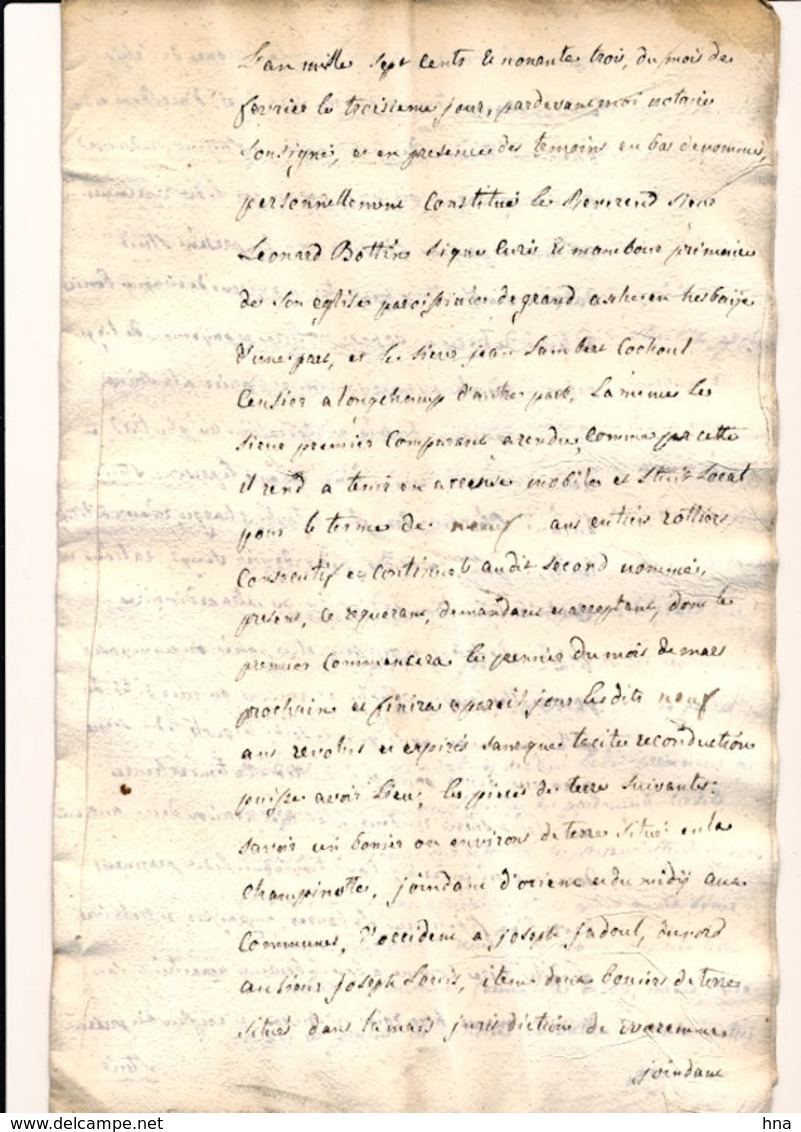 L'an mille sept cents & nonante trois, du mois de
fevrier le troisieme jour, pardevant moi notaire
sousigné, et en presence des temoins en bas denommés,
personnellement constitué le Reverend sieur
Leonard Bottin curé & mambour primaire
de son eglise paroissiale de grand axhe en hesbaije
d'une part, et le sieur jean Lambert Cochoul
Censier a longchamp d'autre part, La meme le
sieur premier Comparant a rendu, comme par cette
il rend a tenir en accense mobile et stuit Local
pour le terme de neuf ans entiers rottiers
Consecutif et continuels audit second nommé,
present, ce requerant, demandant et acceptant, dont le
premier commencera le premier du mois de mars
prochain et finira a pareil jour les dits neuf
ans revolus et expirés sans que tacite reconduction
puisse avoir Lieu; les pieces de terre suivantes:
savoir un bonier ou environs de terre situé en la
Champinotte, joindant d'orient et du midij aux
Communes, d'occident a joseph jadoul, du nord
au sieur Joseph Louis, item deux boniers de terre
situés dans la mais jurisdiction de waremme
joindant
hna